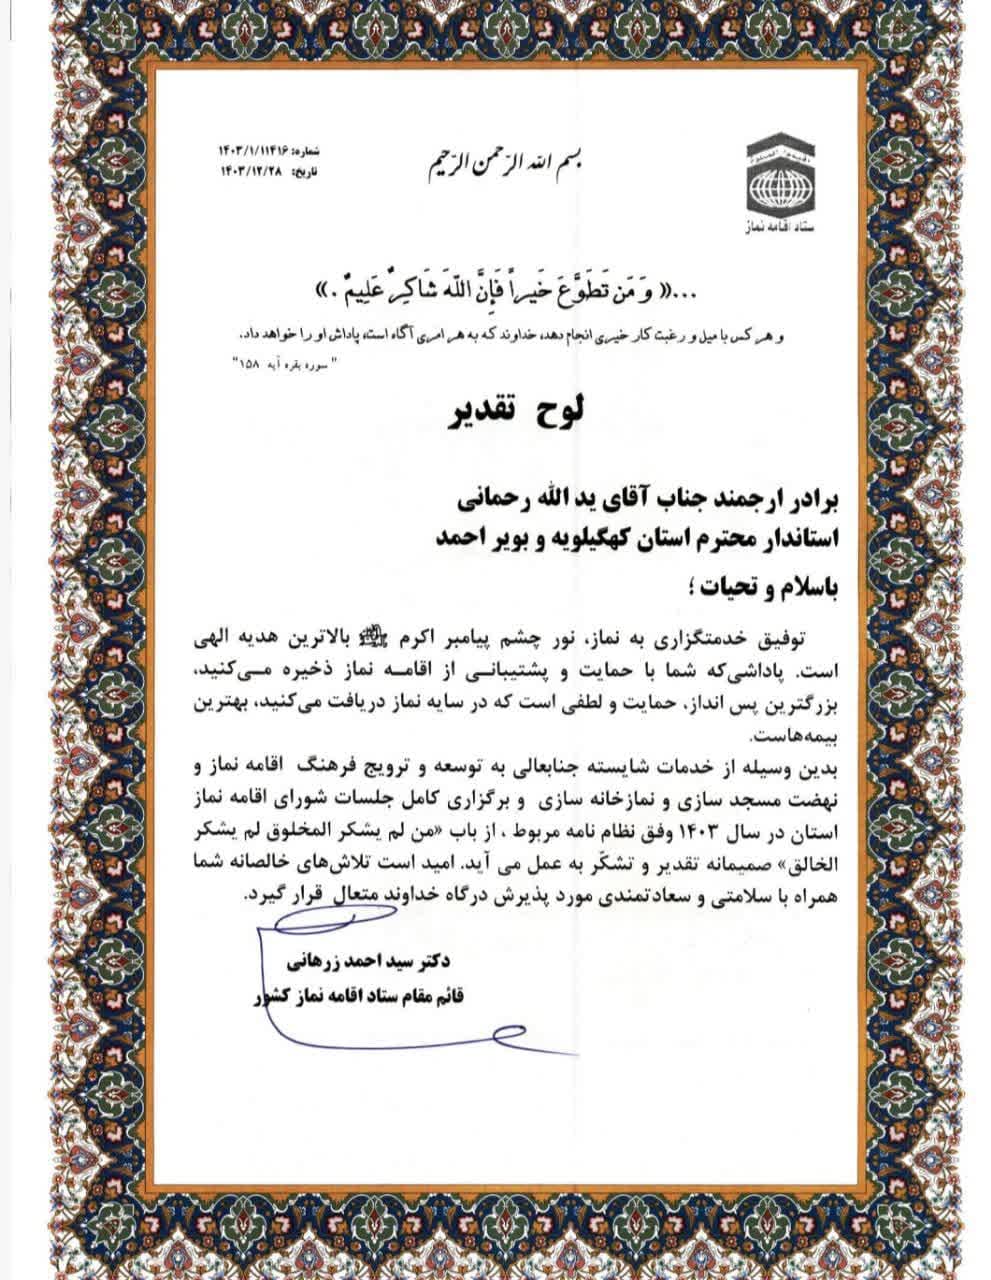 بسم الله الرّحمن الرّحیم
شماره: ۱۴۰۳/۱/۱۱۴۱۶
تاریخ: ۱۴۰۳/۱۲/۲۸
ستاد اقامه نماز
...« وَ مَن تَطَوَّعَ خَیراً فَإِنَّ اللّهَ شَاکِرٌ عَلِیمٌ .»
و هر کس با میل و رغبت کار خیری انجام دهد، خداوند که به هر امری آگاه است، پاداش او را خواهد داد.
"سوره بقره آیه ۱۵۸"
لوح تقدیر
برادر ارجمند جناب آقای ید الله رحمانی
استاندار محترم استان کهگیلویه و بویر احمد
باسلام و تحیات ؛
توفیق خدمتگزاری به نماز، نور چشم پیامبر اکرم ﷺ بالاترین هدیه الهی
است. پاداشی‌که شما با حمایت و پشتیبانی از اقامه نماز ذخیره می‌کنید،
بزرگترین پس انداز، حمایت و لطفی است که در سایه نماز دریافت می‌کنید، بهترین
بیمه‌هاست.
بدین وسیله از خدمات شایسته جنابعالی به توسعه و ترویج فرهنگ اقامه نماز و
نهضت مسجد سازی و نمازخانه سازی و برگزاری کامل جلسات شورای اقامه نماز
استان در سال ۱۴۰۳ وفق نظام نامه مربوط ، از باب «من لم یشکر المخلوق لم یشکر
الخالق» صمیمانه تقدیر و تشکّر به عمل می آید. امید است تلاش‌های خالصانه شما
همراه با سلامتی و سعادتمندی مورد پذیرش درگاه خداوند متعال قرار گیرد.
دکتر سید احمد زرهانی
قائم مقام ستاد اقامه نماز کشور